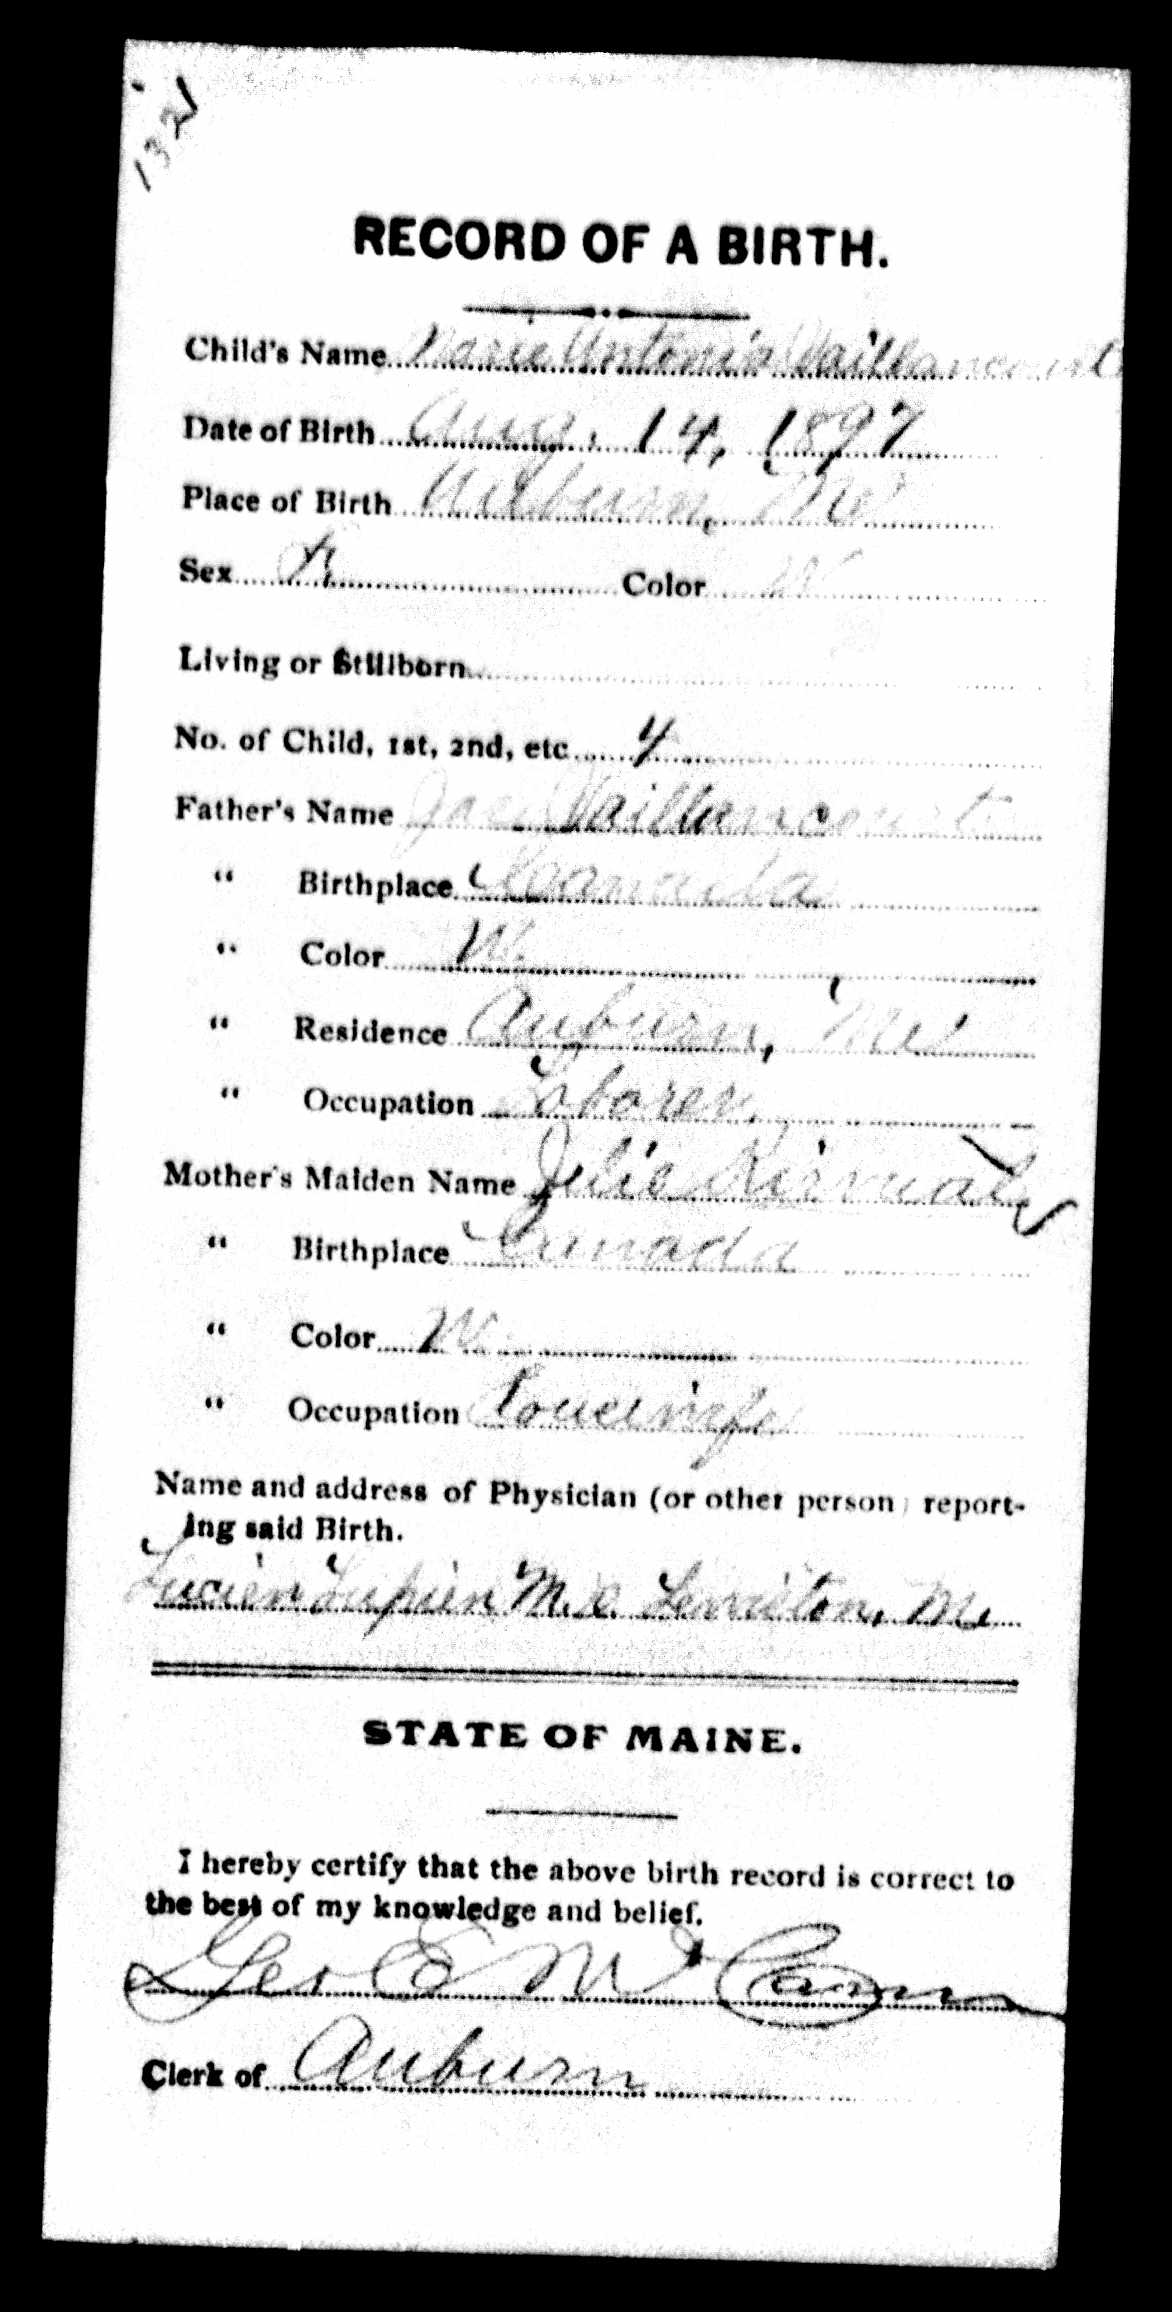 1321
RECORD OF A BIRTH.
Child's Name Marie Antonia Vaillancourt
Date of Birth Aug. 14, 1897
Place of Birth Auburn, Me
Sex F. Color W
Living or Stillborn
No. of Child, 1st, 2nd, etc 4
Father's Name Vaillancourt
" Birthplace Canada
" Color W.
" Residence Auburn, Me
" Occupation Laborer.
Mother's Maiden Name Julie
" Birthplace Canada
" Color W.
" Occupation Housewife
Name and address of Physician (or other person) report-
ing said Birth.
Lucien Lupien M.D. Lewiston, Me
STATE OF MAINE.
I hereby certify that the above birth record is correct to
the best of my knowledge and belief.
Geo E McCann
Clerk of Auburn